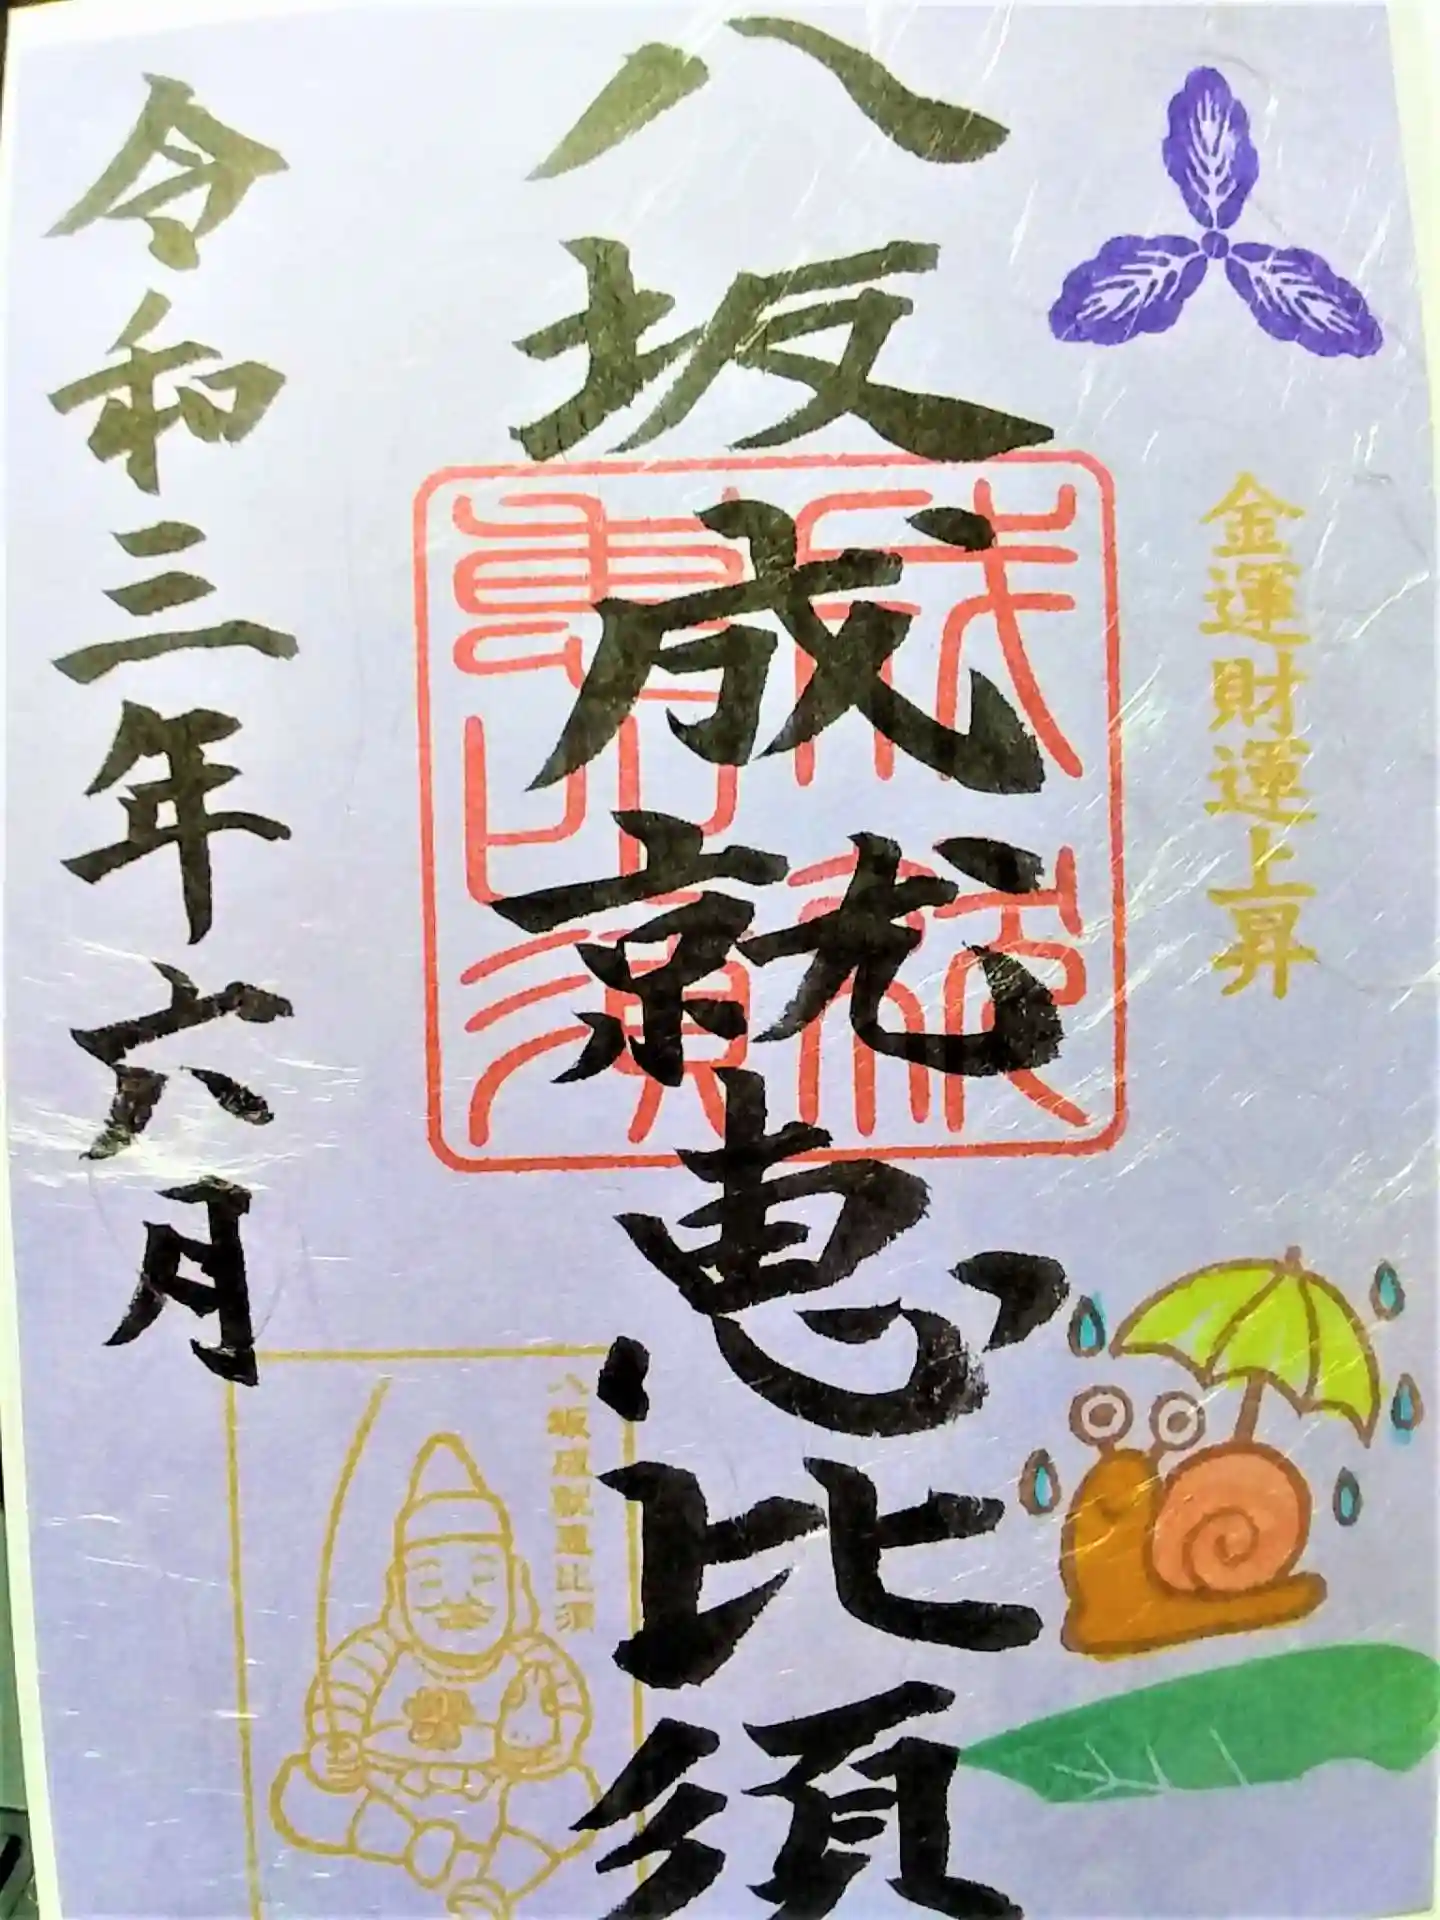 金運財運上昇
八坂成就恵比須
成就恵比須
令和三年六月
八坂成就恵比須